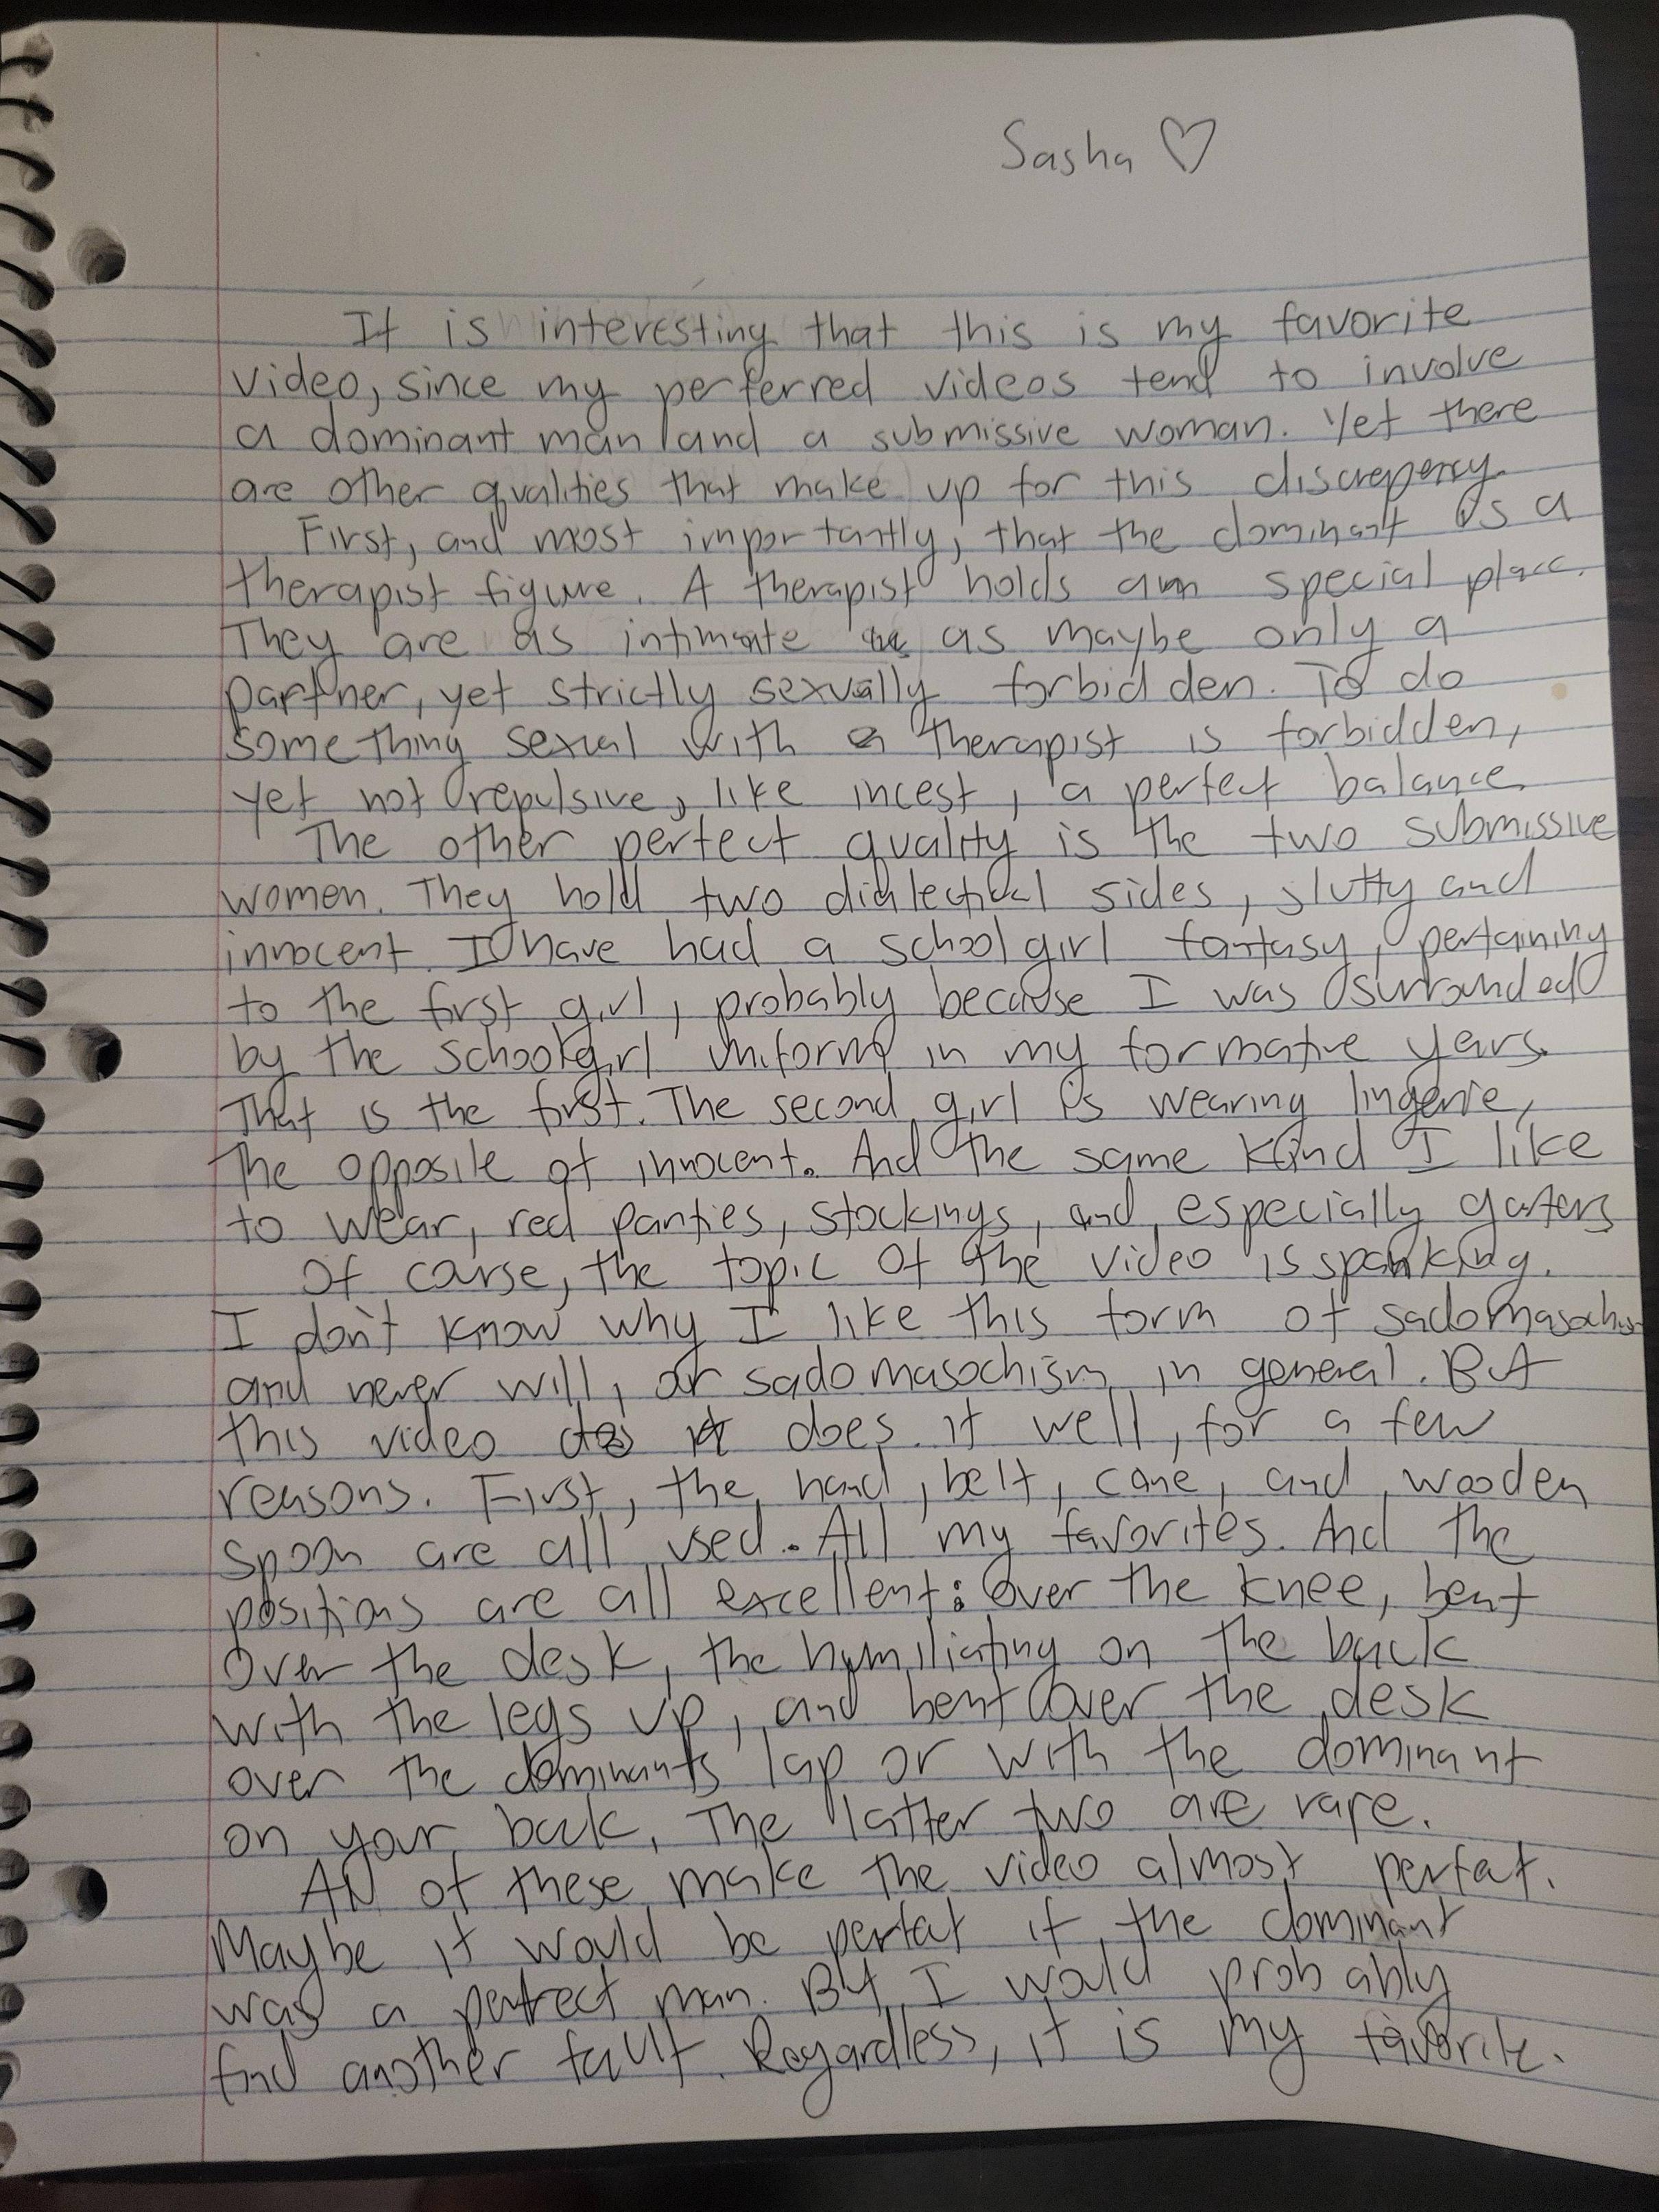 Sasha ♡
It is interesting that this is my favorite
video, since my perferred videos tend to involve
a dominant man and a submissive woman. Yet there
are other qualities that make up for this discrepency.
First, and most importantly, that the dominant is a
therapist figure. A therapist holds a special place.
They are as intimate as maybe only a
partner, yet strictly sexually forbidden. To do
something sexual with a therapist is forbidden,
yet not repulsive, like incest, a perfect balance.
The other perfect quality is the two submissive
women. They hold two dialectical sides, slutty and
innocent. I have had a schoolgirl fantasy, pertaining
to the first girl, probably because I was surrounded
by the schoolgirl uniform in my formative years.
That is the first. The second girl is wearing lingerie,
the opposite of innocent. And the same kind I like
to wear, red panties, stockings, and especially garters
Of course, the topic of the video is spanking.
I don't know why I like this form of sadomasochism
and never will, or sadomasochism in general. But
this video does it well, for a few
reasons. First, the hand, belt, cane, and wooden
spoon are all used. All my favorites. And the
positions are all excellent: over the knee, bent
over the desk, the humiliating on the back
with the legs up, and bent over the desk
over the dominants lap or with the dominant
on your back. The latter two are rare.
All of these make the video almost perfect.
Maybe it would be perfect if the dominant
was a perfect man. But I would probably
find another fault. Regardless, it is my favorite.